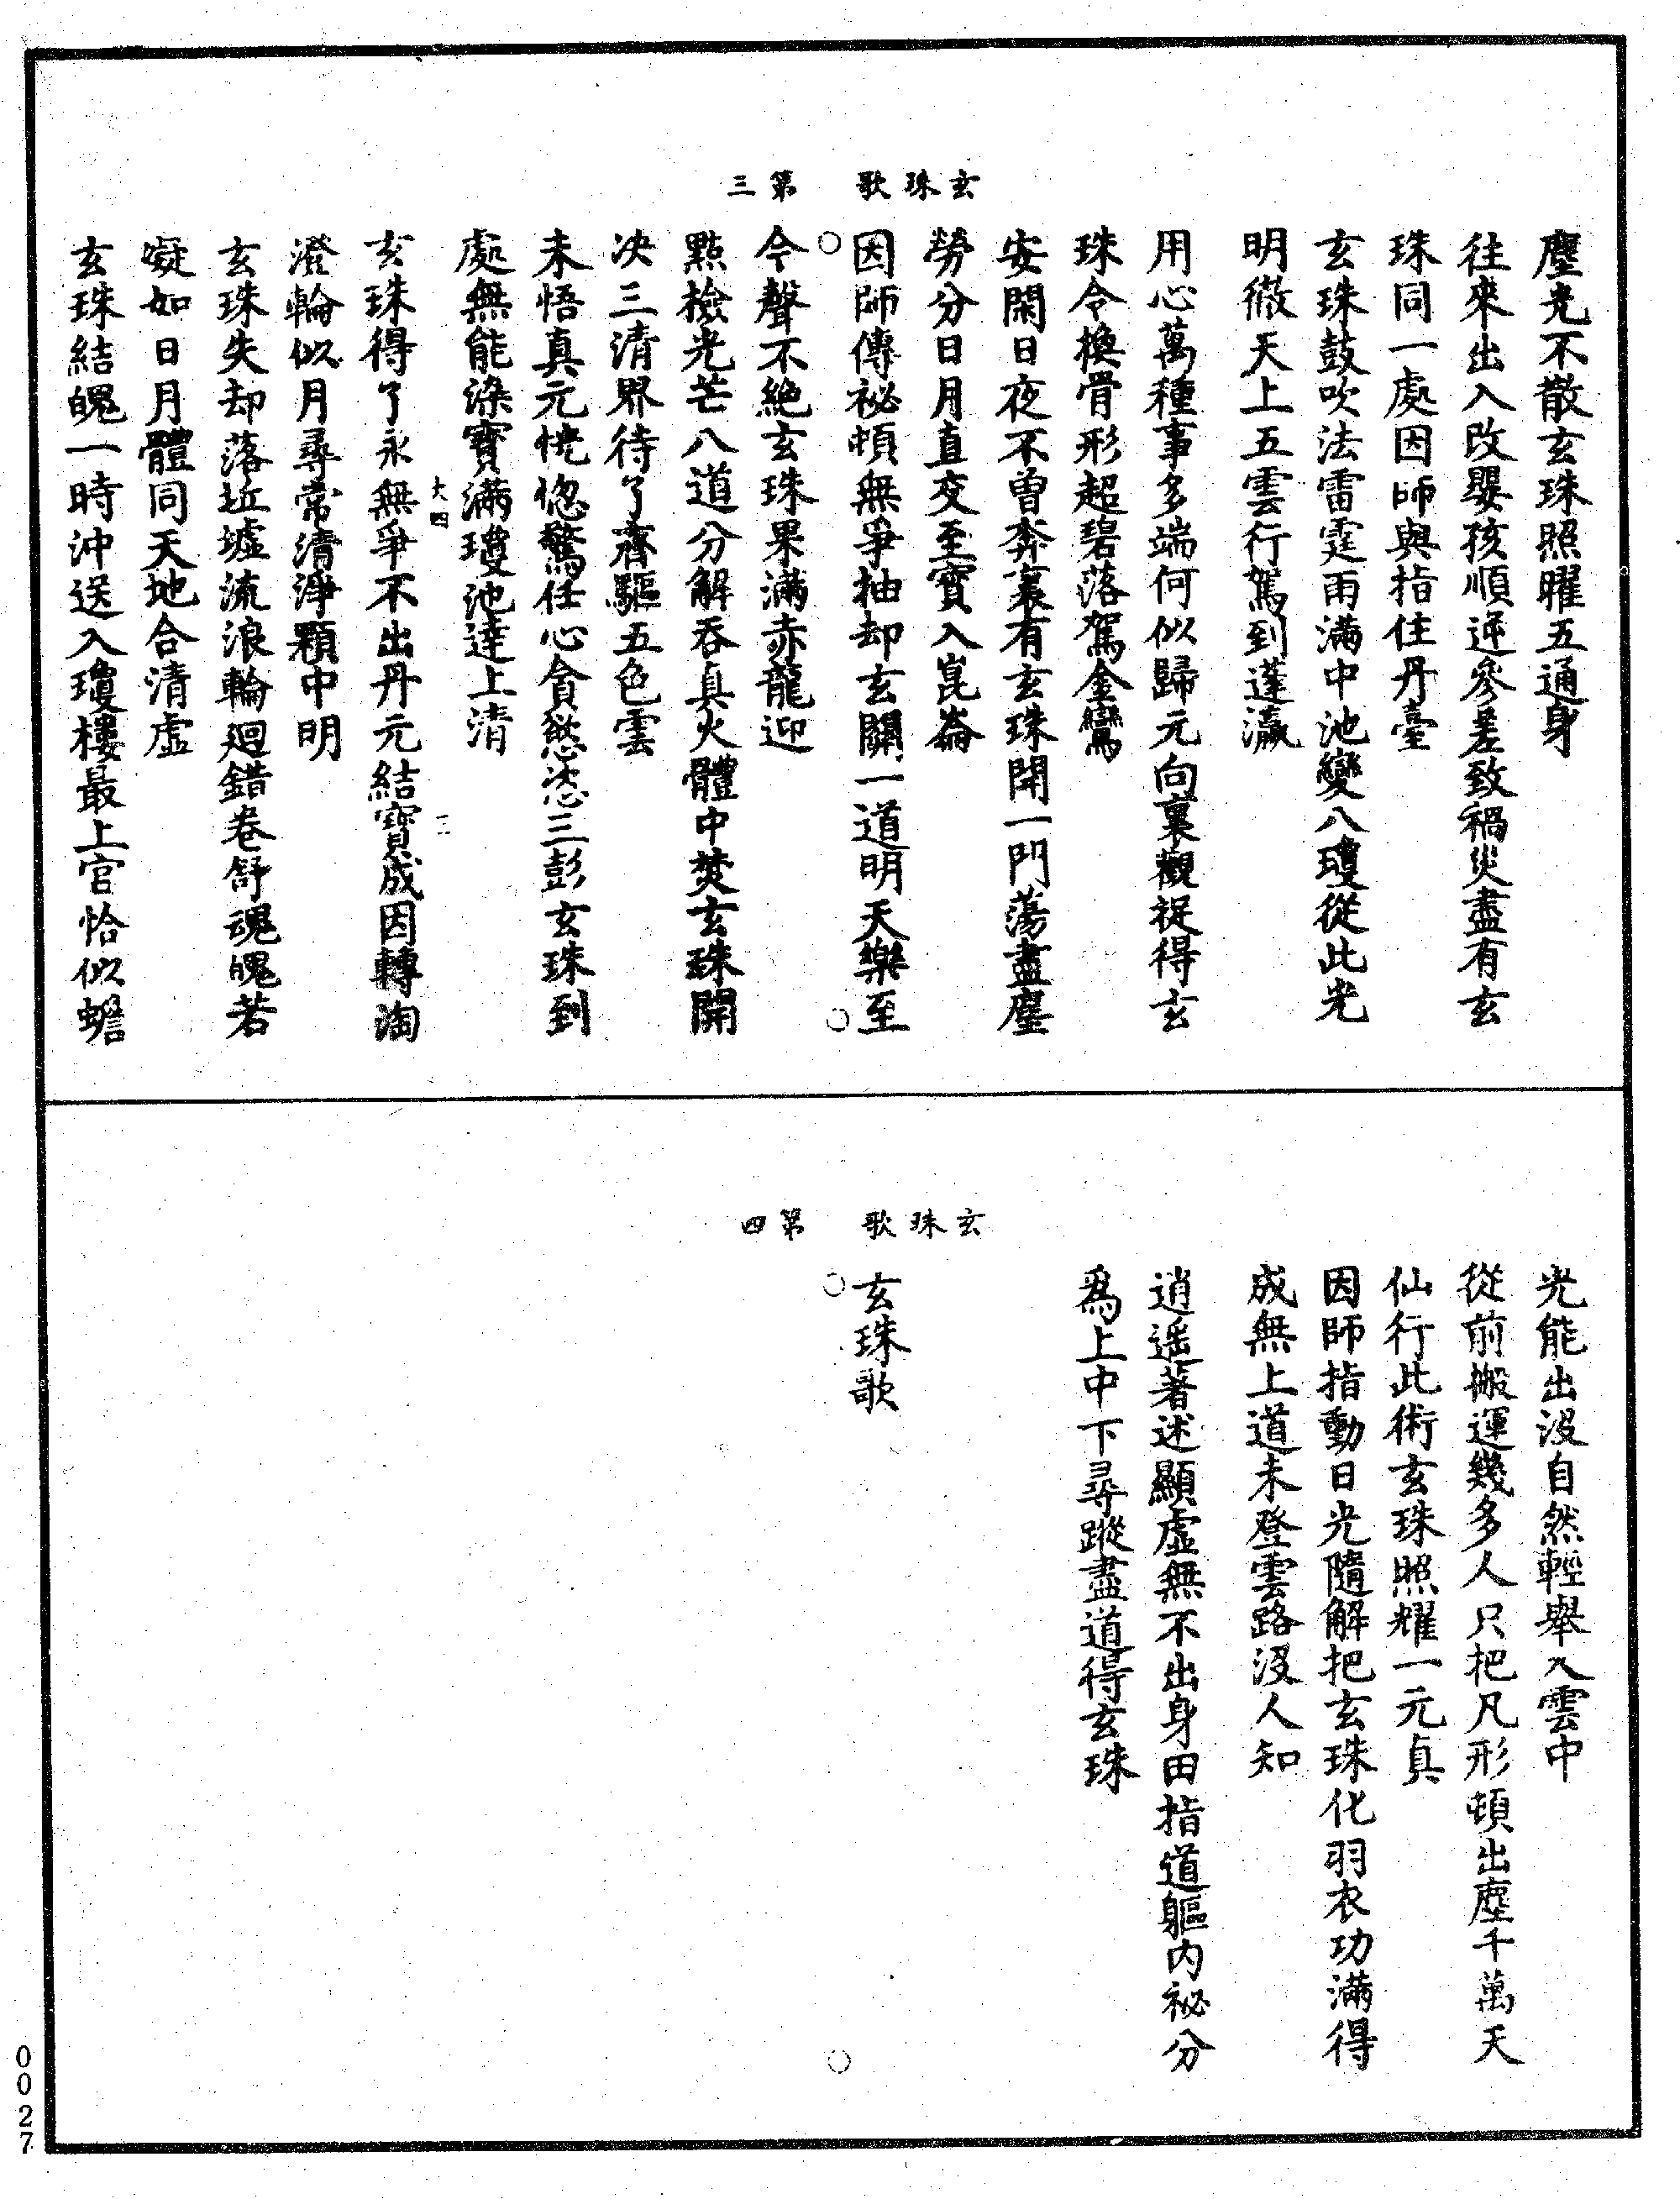 塵光不散玄珠照曜五通身
往來出入改嬰孩順逆參差致禍災盡有玄
珠同一處因師與指住丹臺
玄珠鼓吹法雷霆雨滿中池變八瓊從此光
明徹天上五雲行駕到蓬瀛
用心萬種事多端何似歸元向裏觀捉得玄
珠令換骨形超碧落駕金鸞
安閑日夜不曾奔裏有玄珠開一門蕩盡塵
勞分日月直交至寶入崑崙
玄珠歌　第三
因師傳祕頓無爭抽却玄關一道明天樂至
今聲不絶玄珠果滿赤龍迎
點檢光芒八道分解吞真火體中焚玄珠開
决三清界待了齊驅五色雲
未悟真元恍惚驚任心貪慾恣三彭玄珠到
處無能染寶滿瓊池達上清
大四　二
玄珠得了永無爭不出丹元結寶成因轉淘
澄輪似月尋常清淨顆中明
玄珠失却落丘墟流浪輪迴錯卷舒魂魄若
凝如日月體同天地合清虛
玄珠結魄一時沖送入瓊樓最上官恰似蟾
光能出没自然輕舉入雲中
從前搬運幾多人只把凡形頓出塵千萬天
仙行此術玄珠照耀一元真
因師指動日光隨解把玄珠化羽衣功滿得
成無上道未登雲路没人知
逍遥著述顯虛無不出身田指道軀内祕分
爲上中下尋蹤盡道得玄珠
玄珠歌　第四
玄珠歌
0027